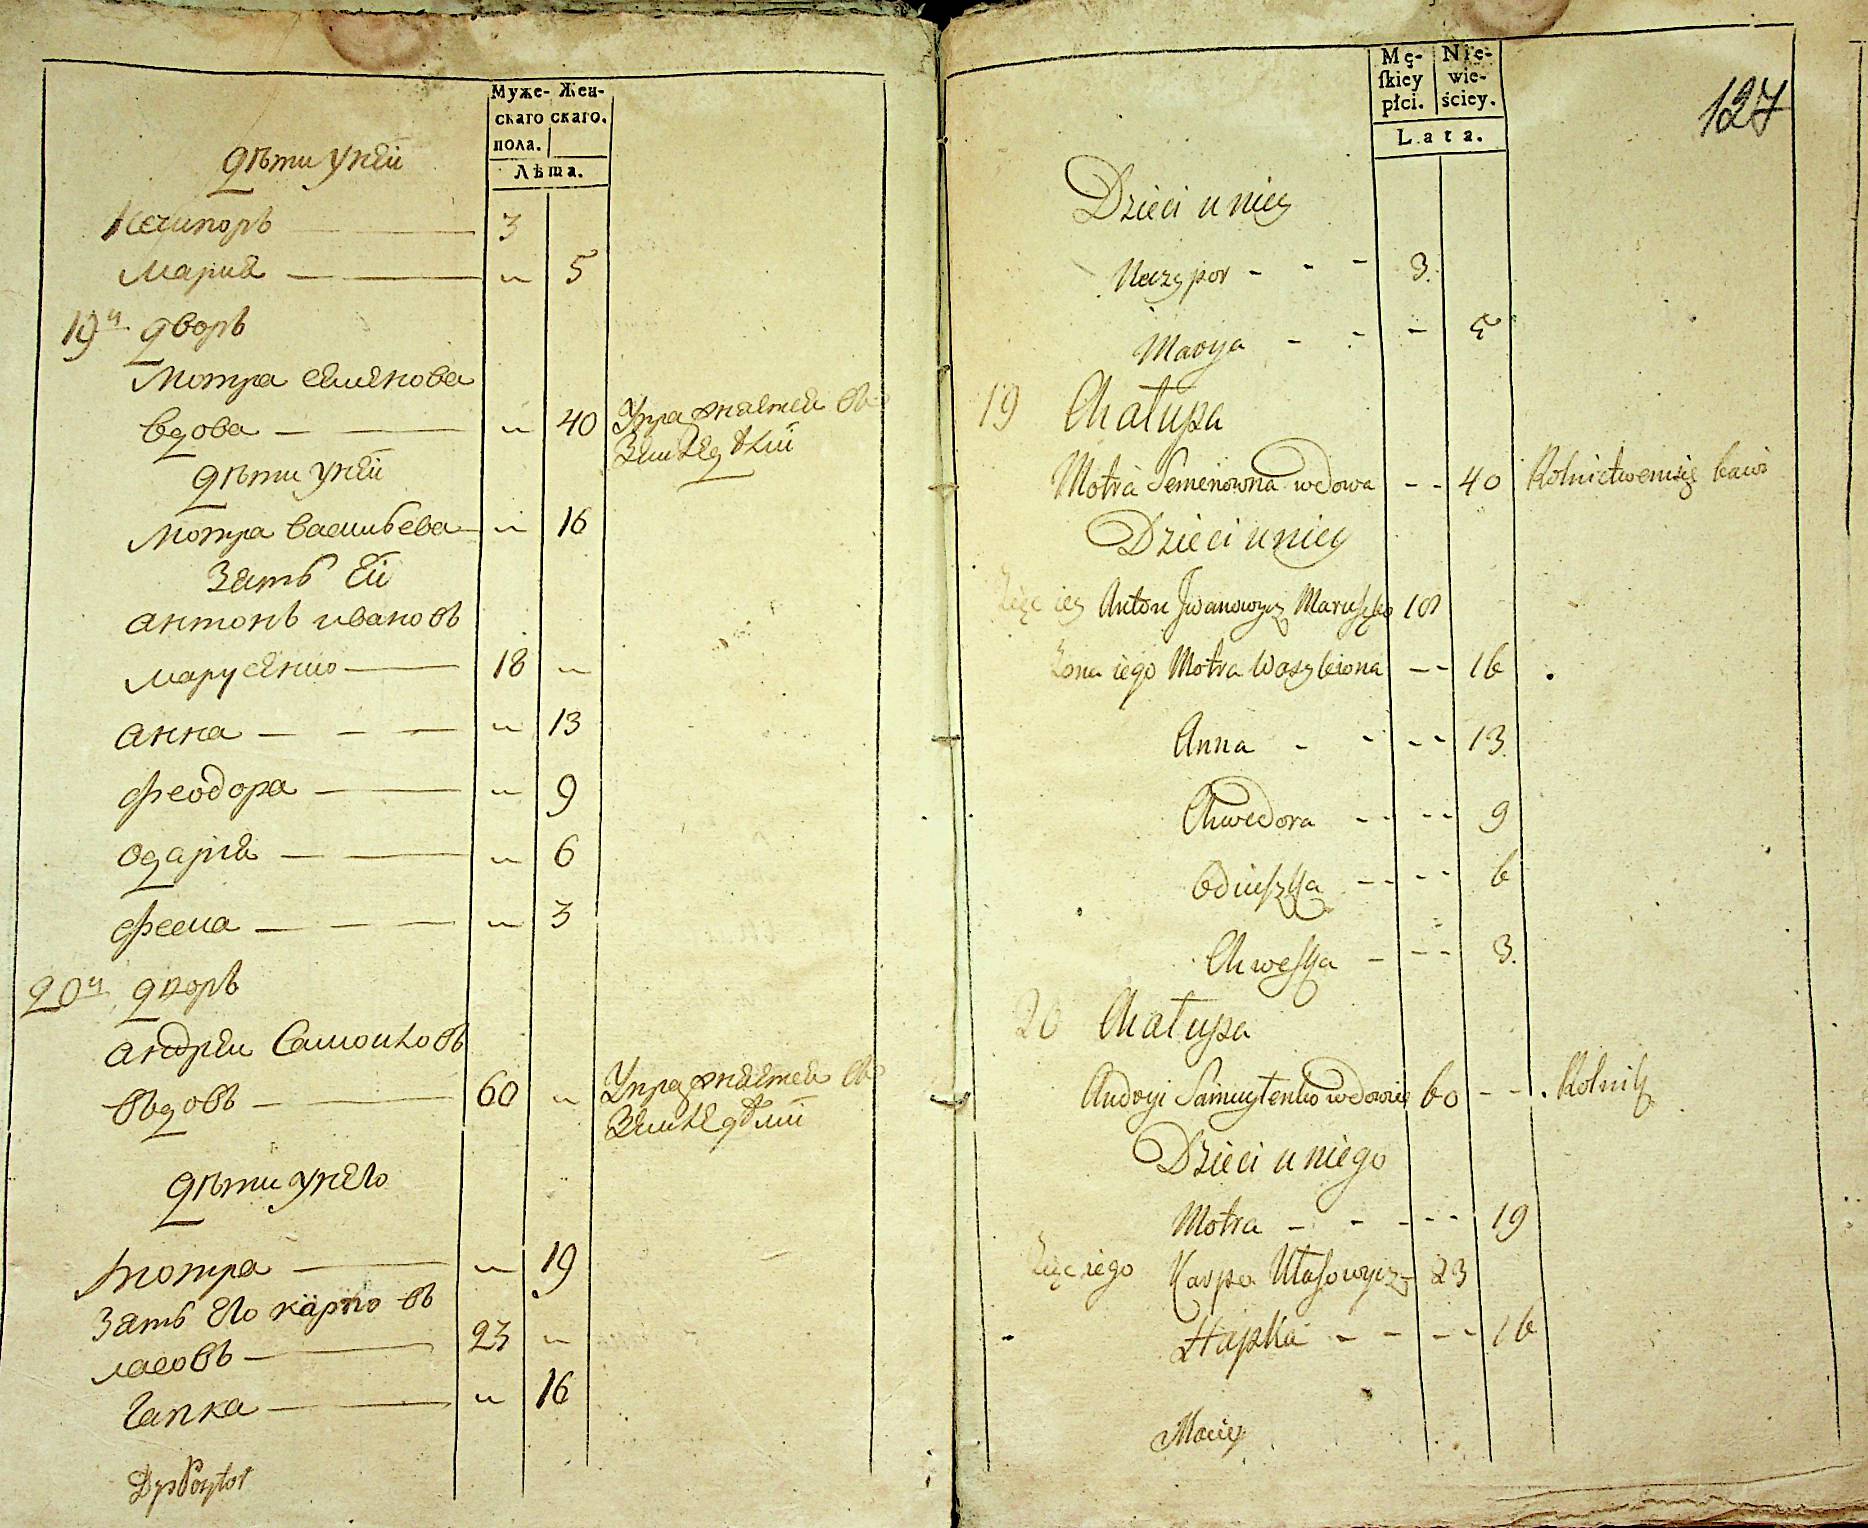 Муже- Жен-
скаго скаго.
пола.
Лѣта.
дѣти у ней
Нечипоръ 3
Мария 5
19й дворъ
Мотра Семенова
вдова 40 Упражняется въ
Земледѣлии
дѣти у ней
Мотра Васильева 16
Зять Ей
Антонъ Ивановъ
Марусенко 18
Анна 13
Феодора 9
Одария 6
Фесма 3
20й дворъ
Андрей Самойловъ
Вдовъ 60 Упражняется въ
Земледѣлии
дѣти у него
Мотра 19
Зять Его Карпо В
ласовъ 23
Гапка 16
127
Mę- Nie-
skiey wie-
płci. ściey.
Lata.
Dzieci u niey
Neczypor - - - 3.
Marya - - - 5
19 Chałupa
Motra Semenowna wdowa - - 40 Rolnictwem się bawi
Dzieci u niey
Zięc iey Anton Jwanowycz Maruszko 18
Zona iego Motra Wasyleiona - - 16
Anna - - - - 13
Chwedora - - - - 9
Odiuszka - - - - 6
Chweska - - - 3.
20 Chałupa
Andryi Samuylenko wdowiec 60 - - . Rolnik
Dzieci u niego
Motra - - - - - 19
Zięc iego Karpo Własowycz - 23
Hapka - - - - 16
Maciey